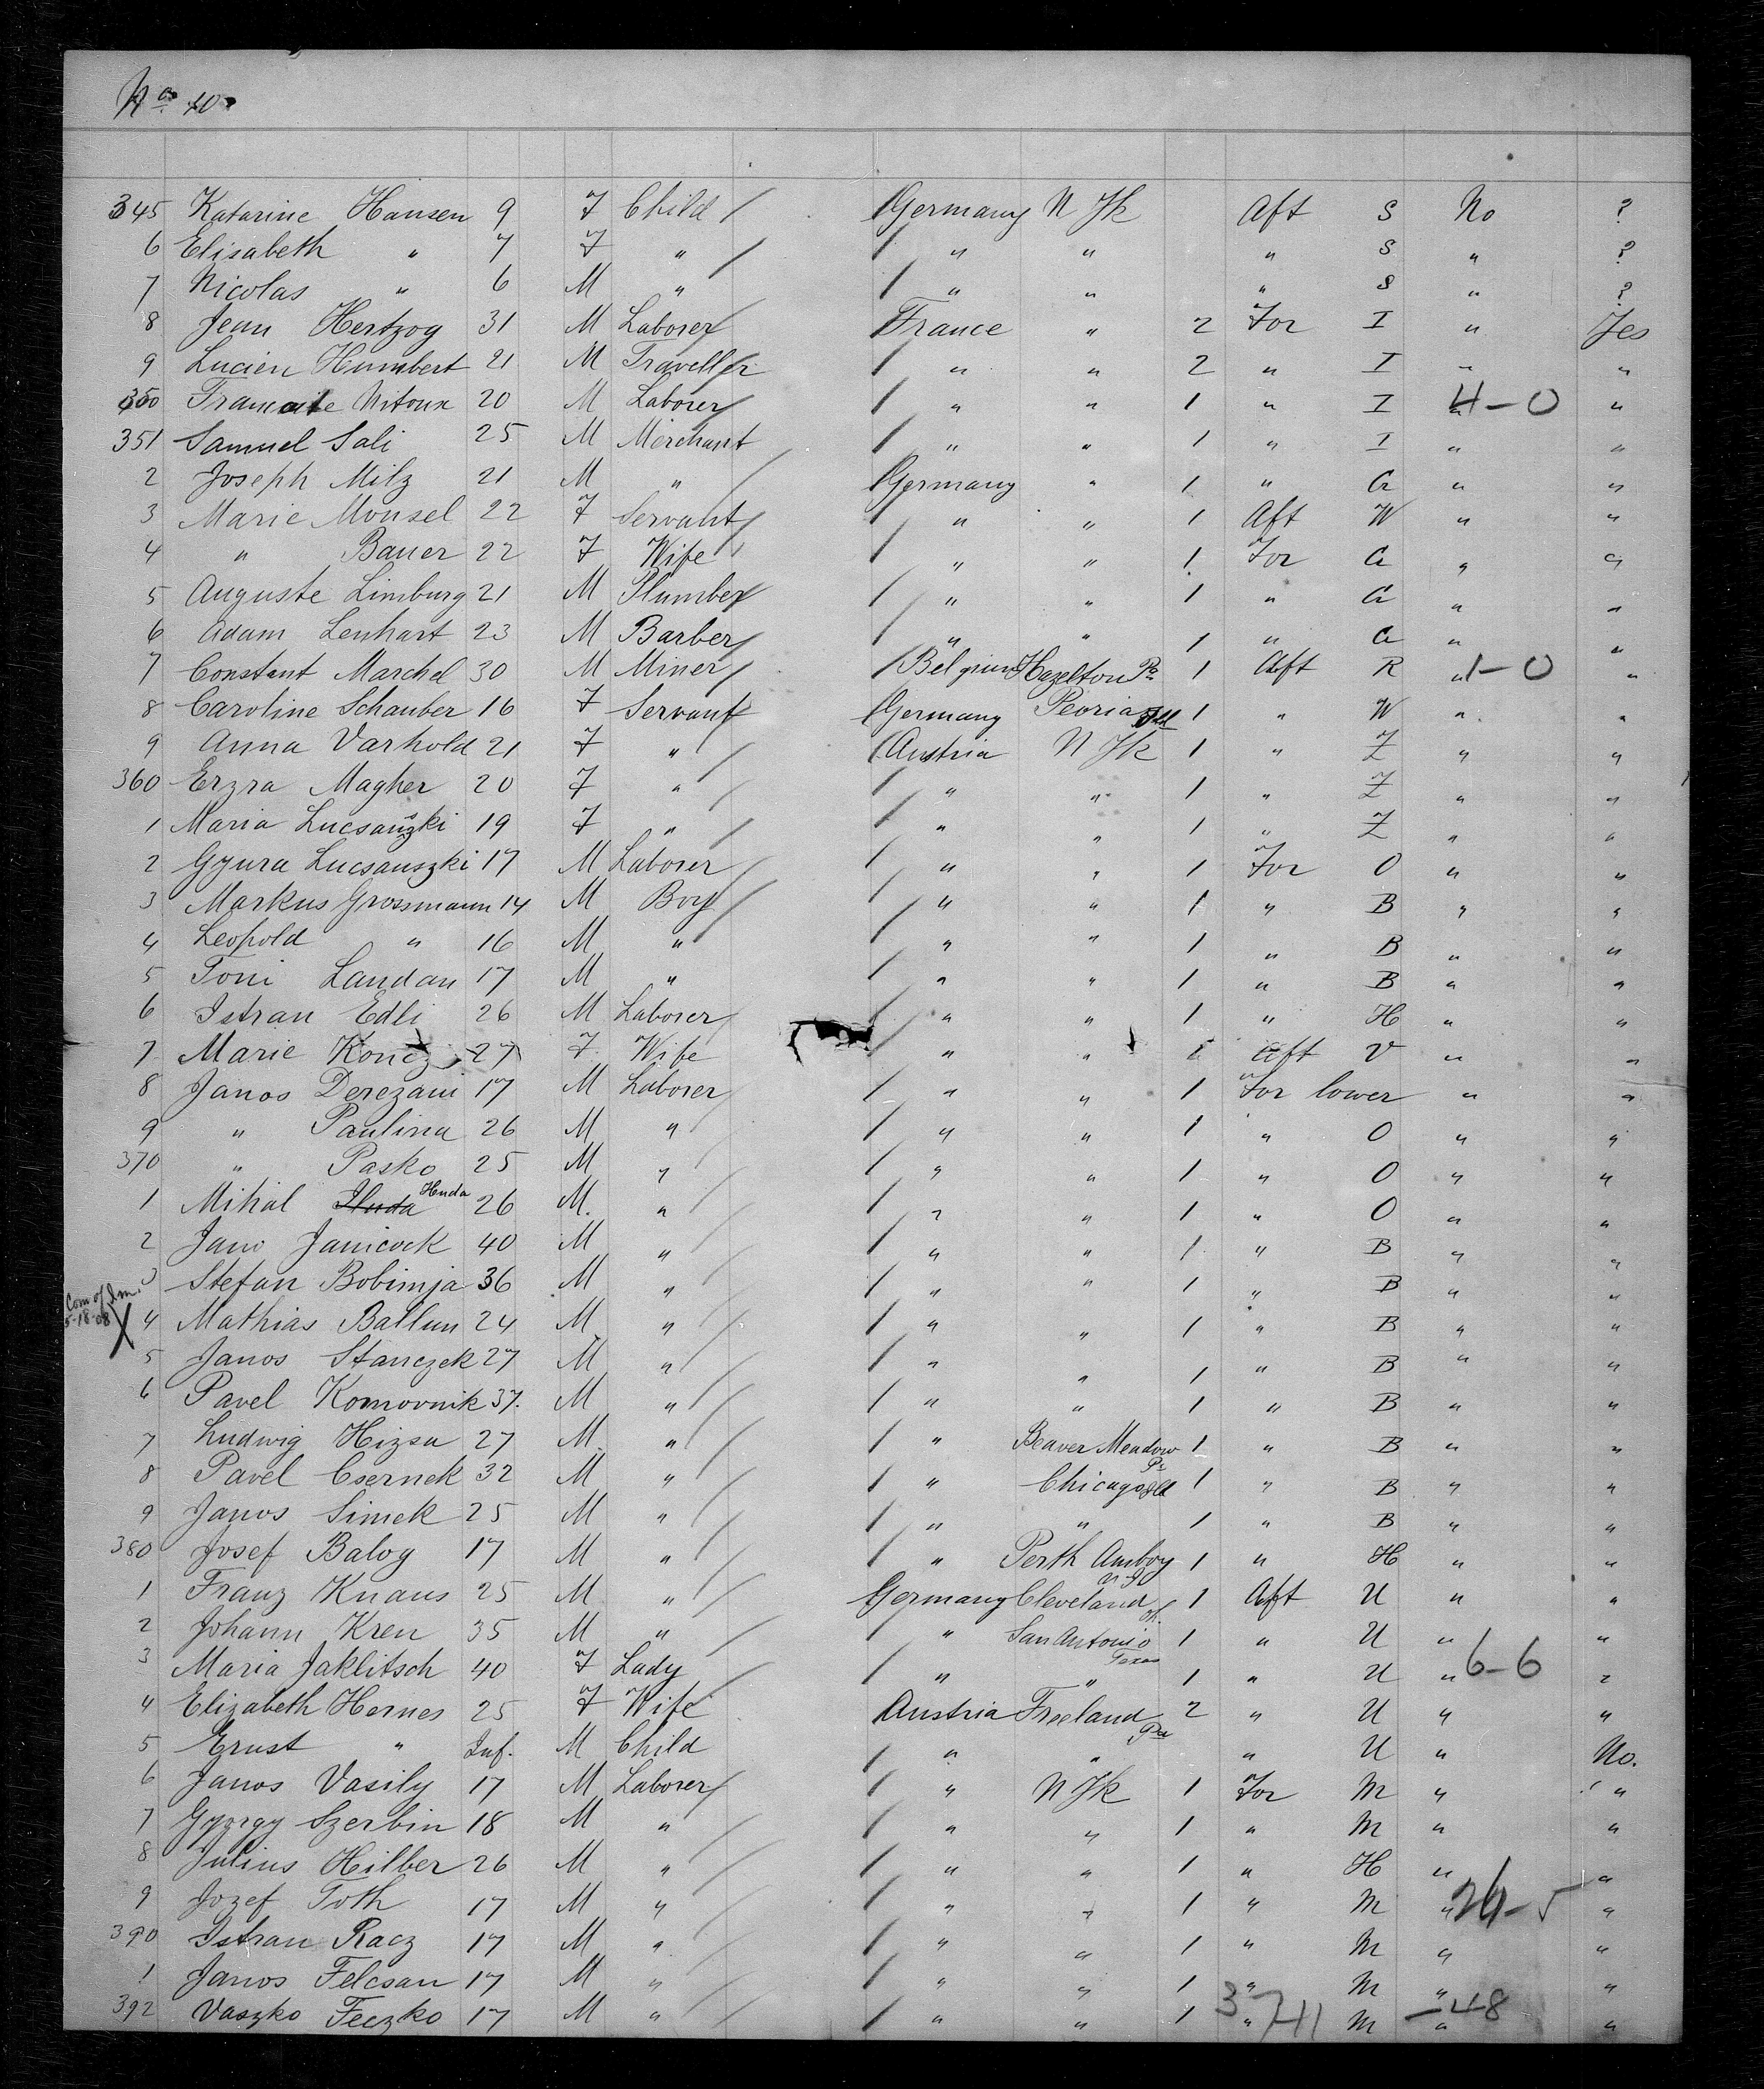 No 10
345 Katarine Hansen 9 F Child / Germany N Yk Aft S No ?
6 Elisabeth " 7 F " / " " " S " ?
7 Nicolas " 6 M " / " " " S " ?
8 Jean Hertzog 31 M Laborer France " 2 For I " Yes
9 Lucien Humbert 21 M Traveller " " 2 " I " "
350 Nitoux 20 M Laborer " " 1 " I " 4-0 "
351 Samuel Sali 25 M Merchant " " 1 " I " "
2 Joseph Milz 21 M " Germany " 1 " G " "
3 Marie Monsel 22 F Servant " " 1 Aft W " "
4 " Bauer 22 F Wife " " 1 For G " "
5 Auguste Limburg 21 M Plumber " " 1 " G " "
6 Adam Lenhart 23 M Barber " " 1 " G " "
7 Constant Marchel 30 M Miner Belgium Hazelton Pa 1 Aft R " 1-0 "
8 Caroline Schauber 16 F Servant Germany Peoria Ill 1 " W " "
9 Anna Varhold 21 F " Austria N Yk 1 " Z " "
360 Erzra Magher 20 F " " " 1 " Z " "
1 Maria Lucsanszki 19 F " " " 1 " Z " "
2 Gyura Lucsanszki 17 M Laborer " " 1 For O " "
3 Markus Grossmann 14 M Boy " " 1 " B " "
4 Leopold " 16 M " " " 1 " B " "
5 Toni Landau 17 M " " " 1 " B " "
6 Istran Edli 26 M Laborer " " 1 " H " "
7 Marie Koncz 27 F Wife " " 1 Aft V " "
8 Janos Derezani 17 M Laborer " " 1 For lower " "
9 " Paulina 26 M " " " 1 " O " "
370 " Pasko 25 M " " " 1 " O " "
1 Mihal Huda 26 M. " " " 1 " O " "
2 Jano Janicock 40 M " " " 1 " B " "
3 Stefan Bobimja 36 M " " " 1 " B " "
Com of Im. 5-18-08 X 4 Mathias Ballun 24 M " " " 1 " B " "
5 Janos Stanczek 27 M " " " 1 " B " "
6 Pavel Komovnik 37. M " " " 1 " B " "
7 Ludwig Hizsa 27 M " " Beaver Meadow Pa 1 " B " "
8 Pavel Csernek 32 M " " Chicago Ill 1 " B " "
9 Janos Simek 25 M " " " 1 " B " "
380 Josef Balog 17 M " " Perth Amboy N J 1 " H " "
1 Franz Knaus 25 M " Germany Cleveland Oh. 1 Aft U " "
2 Johann Kren 35 M " " San Antonio Texas 1 " U " "
3 Maria Jaklitsch 40 F Lady " " 1 " U " 6-6 "
4 Elizabeth Hernes 25 F Wife Austria Freeland Pa 2 " U " "
5 Ernst " Inf. M Child " " " U " No.
6 Janos Vasily 17 M Laborer " N Yk 1 For M " "
7 Gyorgy Szerbin 18 M " " " 1 " M " "
8 Julius Hilber 26 M " " " 1 " H " "
9 Jozef Toth 17 M " " " 1 " M " 26-5 "
390 Istran Racz 17 M " " " 1 " M " "
1 Janos Felcsan 17 M " " " 1 " M " "
392 Vaszko Feczko 17 M " " " 1 " M " "
-48